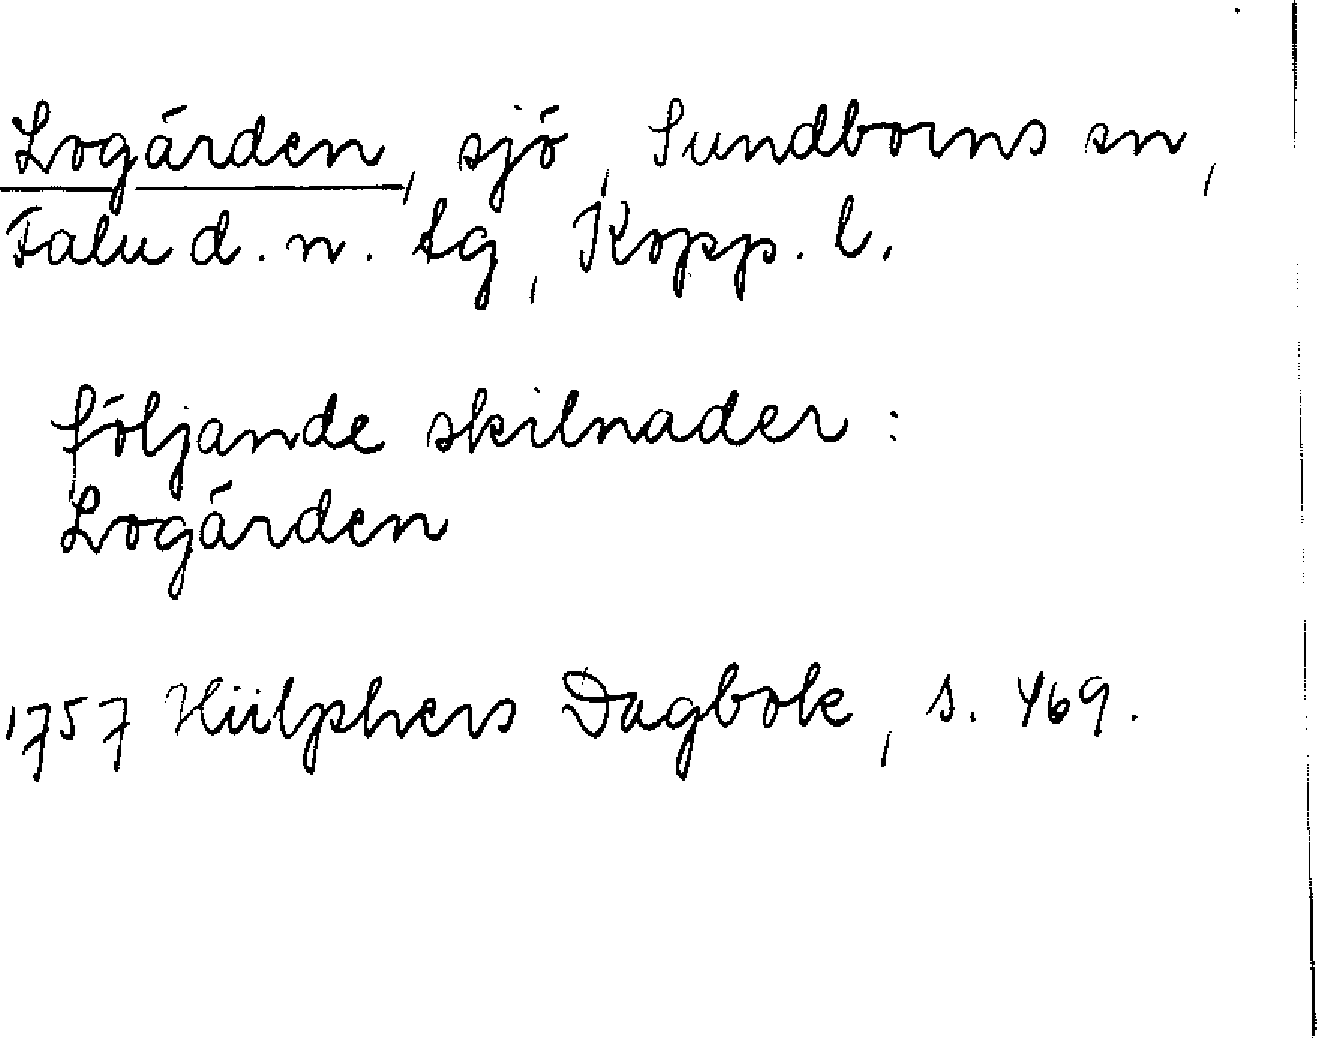 Logården, sjö, Sundborns sn,
Falu d. n. tg, Kopp. l.
följande skilnader:
Logården
1757 Hülphers Dagbok, s. 469.